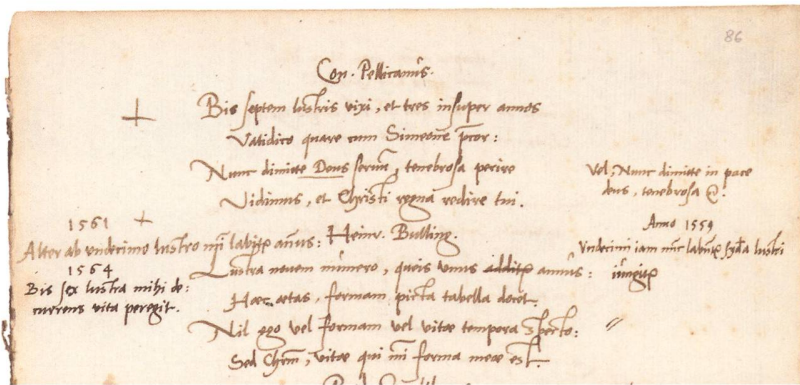 86
Con. Pellicanus.
Bis septem lustris vixi, et tres insuper annos
Vatidico quare cum Simeone p̄cor:
Nunc dimitte Deus servū, tenebrosa perire
Vidimus, et Christi regna redire tui.
Vel, Nunc dimitte in pace
deus, tenebrosa &.
1561
Alter ab undecimo lustro mihi labitur annus:
Heinr. Bulling.
Anno 1559
Undecimi iam nūc labuntur lustri
1564
Bis sex lustra mihi de:
currens vita peregit.
Lustra novem numero, queis unus additur annus:
iungitur
Haec aetas, formam picta tabella docet.
Nil ego vel formam vel vitae tempora specto:
Sed Chrm̄, vitae qui mī forma meae est.